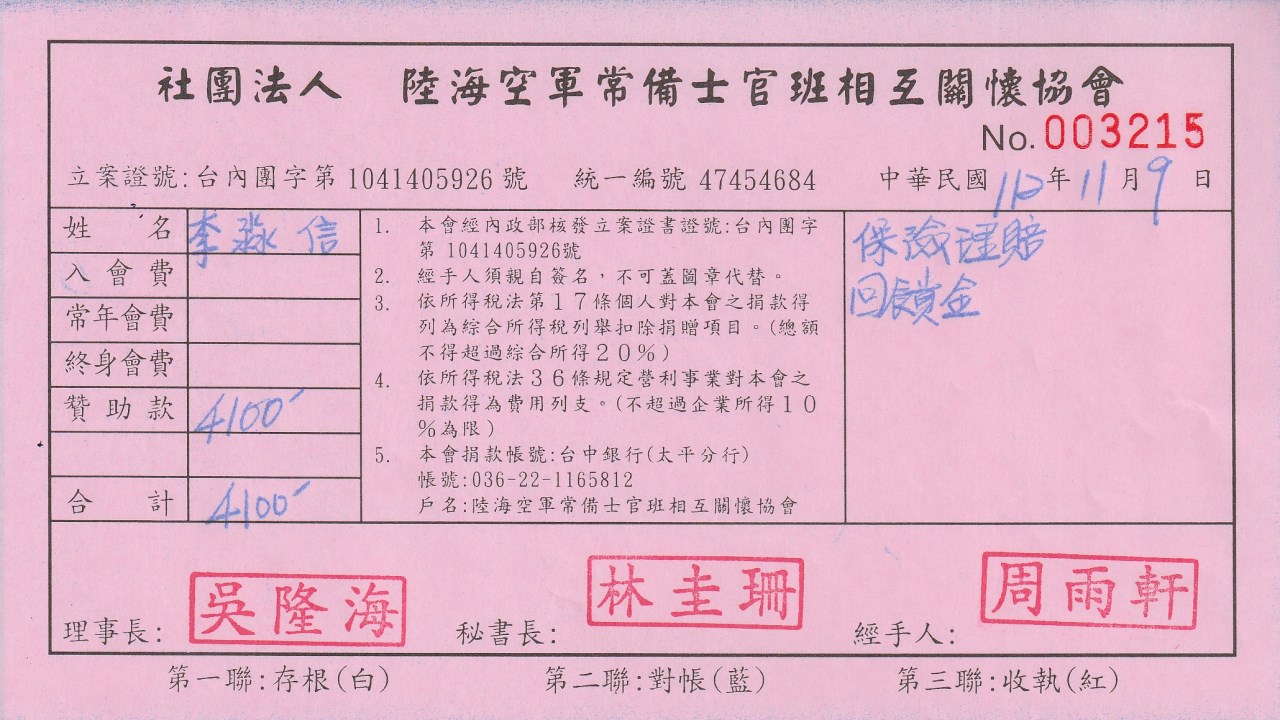 社團法人 陸海空軍常備士官班相互關懷協會
No. 003215
立案證號:台內團字第 1041405926 號 統一編號 47454684 中華民國 112 年 11 月 9 日
姓名 李淼信
入會費
常年會費
終身會費
贊助款 4100
合計 4100
1. 本會經內政部核發立案證書證號:台內團字
第 1041405926號
2. 經手人須親自簽名,不可蓋圖章代替。
3. 依所得稅法第17條個人對本會之捐款得
列為綜合所得稅列舉扣除捐贈項目。(總額
不得超過綜合所得20%)
4. 依所得稅法36條規定營利事業對本會之
捐款得為費用列支。(不超過企業所得10
%為限)
5. 本會捐款帳號:台中銀行(太平分行)
帳號:036-22-1165812
戶名:陸海空軍常備士官班相互關懷協會
保險理賠
回饋金
理事長: 吳隆海 秘書長: 林圭珊 經手人: 周雨軒
第一聯:存根(白) 第二聯:對帳(藍) 第三聯:收執(紅)